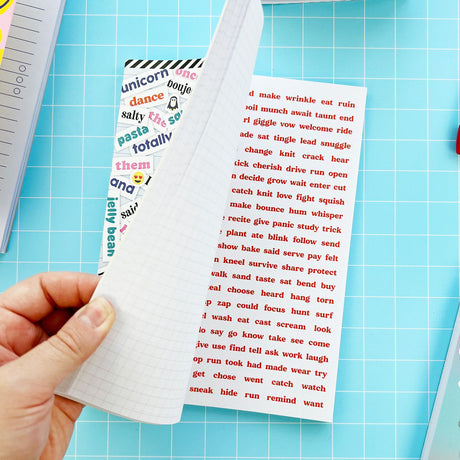 unicorn once
dance
salty the
pasta
totally
them
ana
jelly bean
make wrinkle eat ruin
munch await taunt end
giggle vow welcome ride
sat tingle lead snuggle
change knit crack hear
cherish drive run open
decide grow wait enter cut
catch knit love fight squish
make bounce hum whisper
recite give panic study trick
plant ate blink follow send
show bake said serve pay felt
kneel survive share protect
walk sand taste sat bend buy
choose heard hang torn
zap could focus hunt surf
wash eat cast scream look
say go know take see move
use find tell ask work laugh
run took had made wear try
get chose went catch watch
sneak hide run remind want